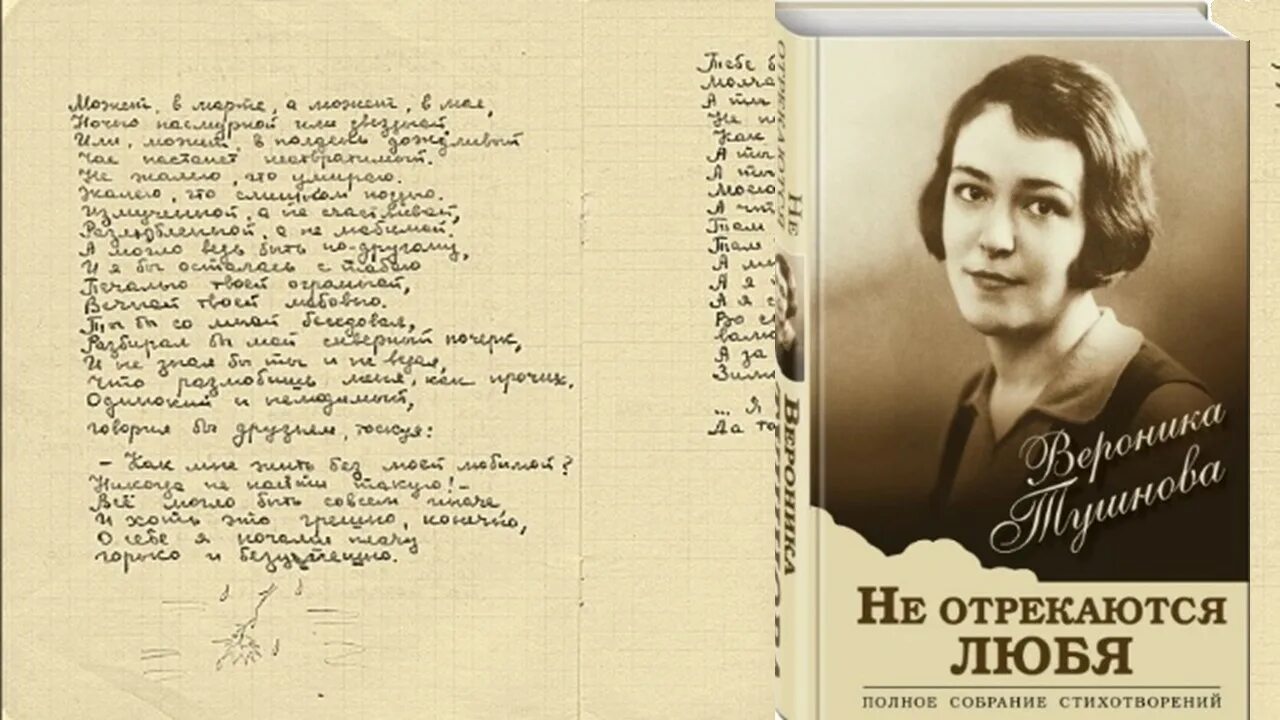 Может, в марте, а может, в мае,
Ночью пасмурной или звездной,
Или, может, в полдень дождливый
Час настанет неотвратимый.
Не жалею, что умираю.
Жалею, что слишком поздно.
Измученной, а не счастливой,
Разлюбленной, а не любимой.
А могло ведь быть по-другому,
И я бы осталась с тобою
Печалью твоей огромной,
Вечной твоей любовью.
Ты бы со мной беседовал,
Разбирал бы мой скверный почерк,
И не знал бы ты и не ведал,
Что разлюбишь меня, как прочих.
Одинокий и нелюдимый,
говорил бы друзьям, тоскуя:
– Как мне жить без моей любимой?
Никогда не найти такую! –
Всё могло быть совсем иначе
И хоть это грешно, конечно,
О себе я ночами плачу
горько и безутешно.
Тебе
Молча
А ты
Не
Как
А ты
А ты
А
Там
Там
А
А я
А я
Во
А за
... Я
Да
НЕ ОТРЕКАЮТСЯ
ВЕРОНИКА
Вероника
Тушнова
НЕ ОТРЕКАЮТСЯ
ЛЮБЯ
ПОЛНОЕ СОБРАНИЕ СТИХОТВОРЕНИЙ